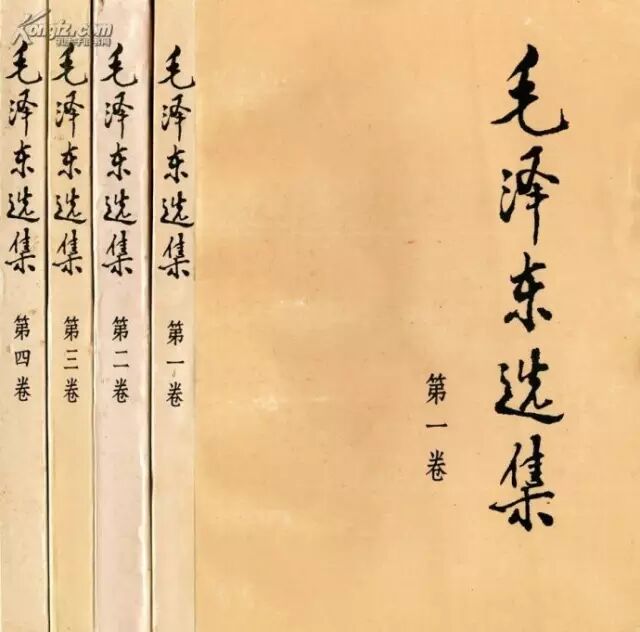 Kongfz.com
孔夫子旧书网
毛泽东选集
第四卷
毛泽东选集
第三卷
毛泽东选集
第二卷
毛泽东选集
第一卷
毛泽东选集
第一卷